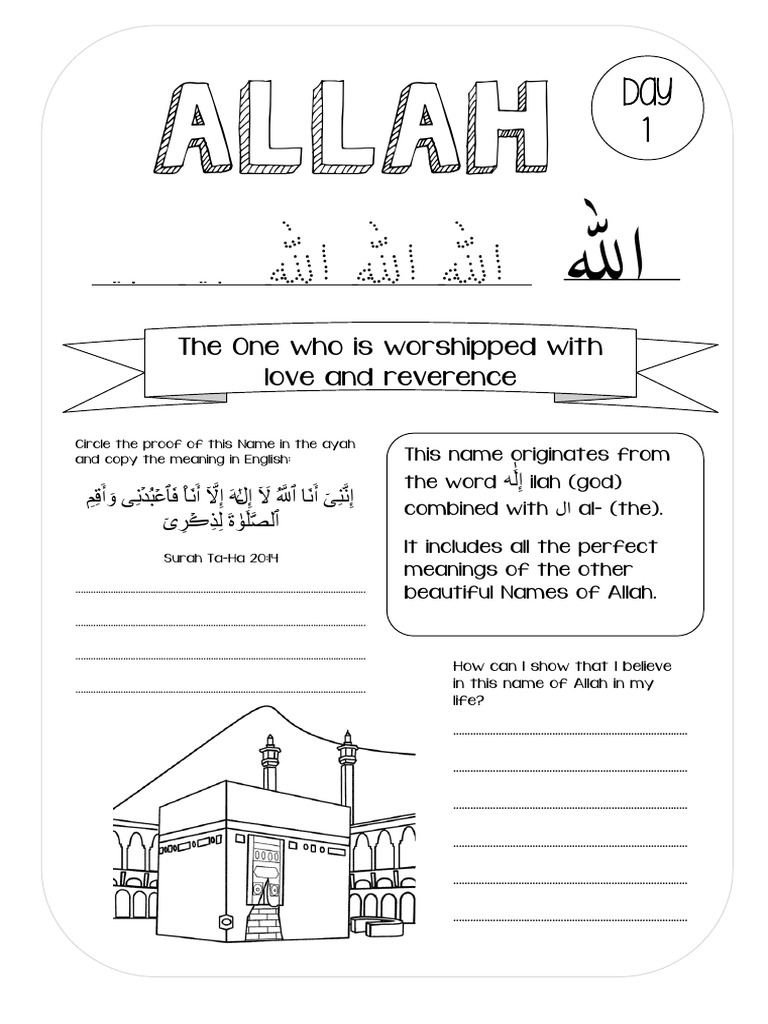 ALLAH
Day
1
الله الله الله
الله
The One who is worshipped with
love and reverence
Circle the proof of this Name in the ayah
and copy the meaning in English:
إِنَّنِىٓ أَنَا ٱللَّهُ لَآ إِلَٰهَ إِلَّآ أَنَا۠ فَٱعْبُدْنِى وَأَقِمِ
ٱلصَّلَوٰةَ لِذِكْرِىٓ
Surah Ta-Ha 20:14
This name originates from
the word إِلَٰه ilah (god)
combined with ال al- (the).
It includes all the perfect
meanings of the other
beautiful Names of Allah.
How can I show that I believe
in this name of Allah in my
life?